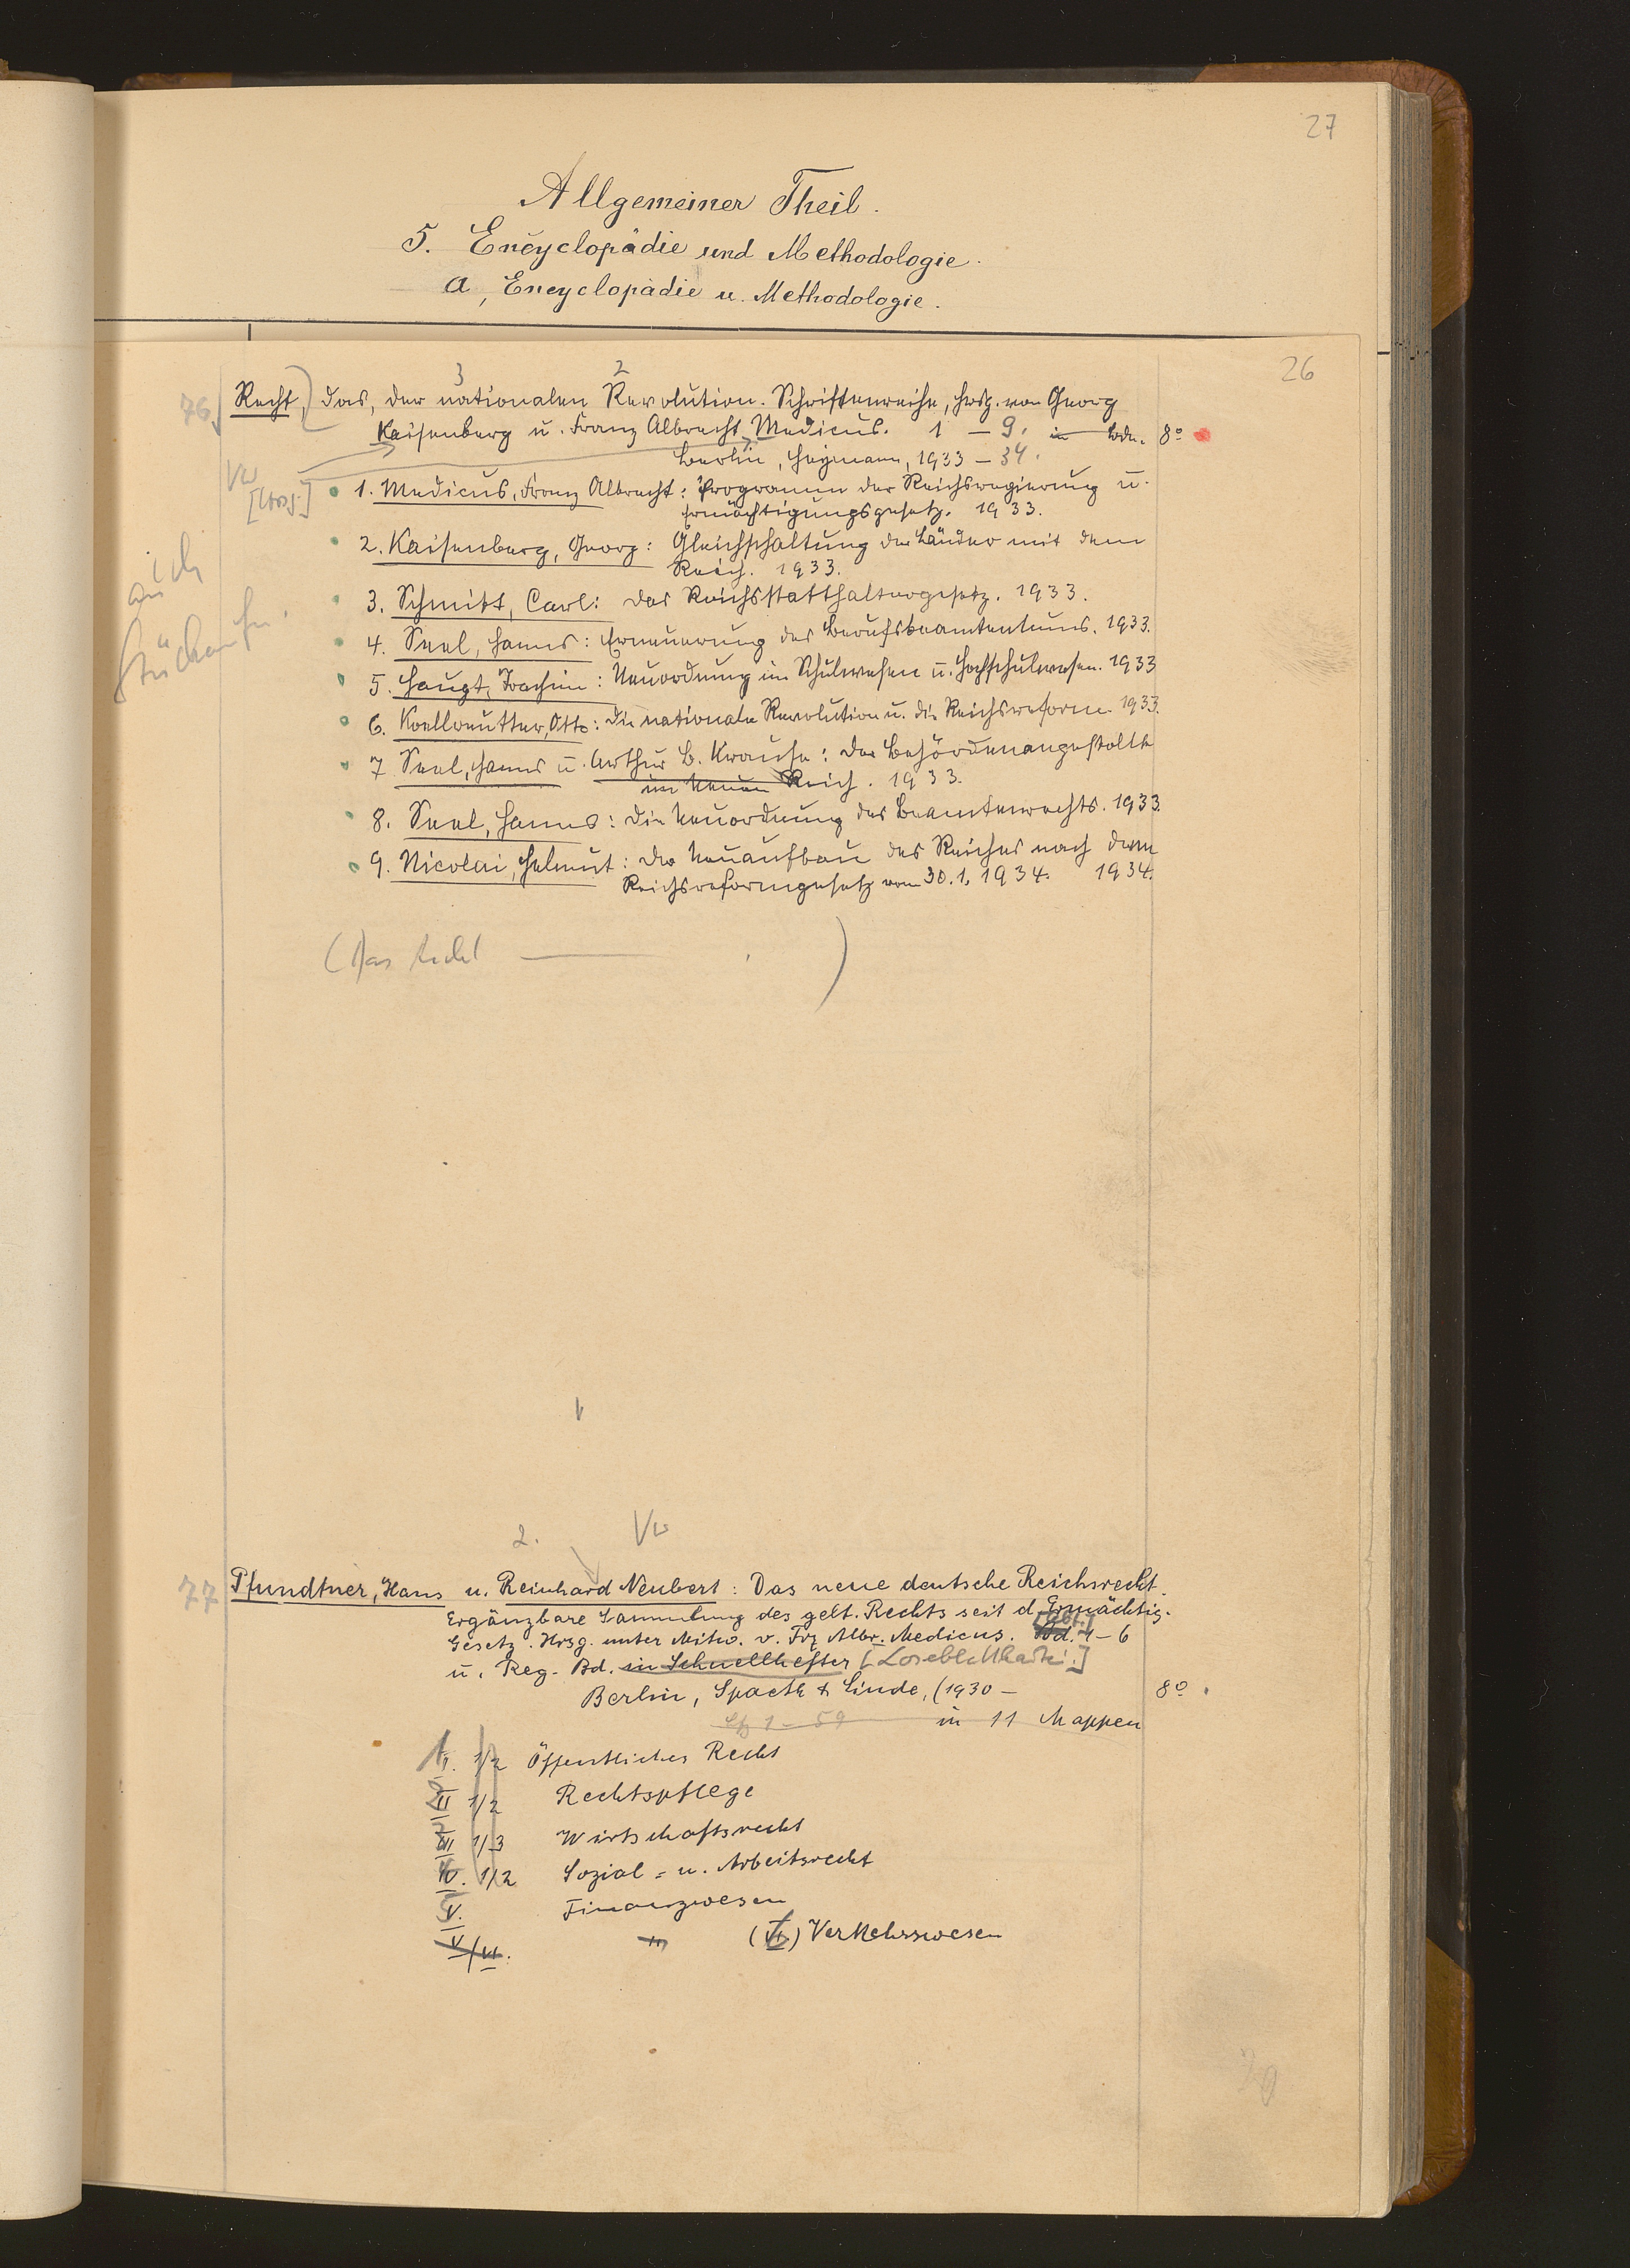 27
Allgemeiner Theil.
5. Encyclopädie und Methodologie.
a, Encyclopädie u. Methodologie.
26
3 2
76. Recht, das, der nationalen Revolution. Schriftenreihe, hrsg. von Georg
Kaisenberg u. Franz Albrecht Medicus. 1 – 9. in Bdn. 8º
Berlin, Heymann, 1933 – 34.
Vw
[Hrsg.] 1. Medicus, Franz Albrecht: Programm der Reichsregierung u.
Ermächtigungsgesetz. 1933.
2. Kaisenberg, Georg: Gleichschaltung der Länder mit dem
Reich. 1933.
3. Schmitt, Carl: Das Reichsstatthaltergesetz. 1933.
4. Seel, Hanns: Erneuerung des Berufsbeamtentums. 1933.
5. Haupt, Joachim: Neuordnung im Schulwesen u. Hochschulwesen. 1933
6. Koellreutter, Otto: Die nationale Revolution u. die Reichsreform. 1933.
7 Seel, Hanns u. Arthur B. Krause: Der Behördenangestellte
im neuen Reich. 1933.
8. Seel, Hanns: Die Neuordnung des Beamtenrechts. 1933.
9. Nicolai, Helmut: Der Neuaufbau des Reiches nach dem
Reichsreformgesetz vom 30.1.1934. 1934.
(Das Recht — . )
2. Vw
77 Pfundtner, Hans u. Reinhard Neubert: Das neue deutsche Reichsrecht.
Ergänzbare Sammlung des gelt. Rechts seit d. Ermächtig.
Gesetz. Hrsg. unter Mitw. v. Frz Albr. Medicus. Bd. [Abt.] 1–6
u. Reg. Bd. in Schnellhefter [Loseblattkartei.]
Berlin, Spaeth & Linde, (1930 – 8º.
Lfg 1 – 59 in 11 Mappen
I. 1/2 Öffentliches Recht
II 1/2 Rechtspflege
III 1/3 Wirtschaftsrecht
IV. 1/2 Sozial= u. Arbeitsrecht
V. Finanzwesen
V/VI. " (VI) Verkehrswesen